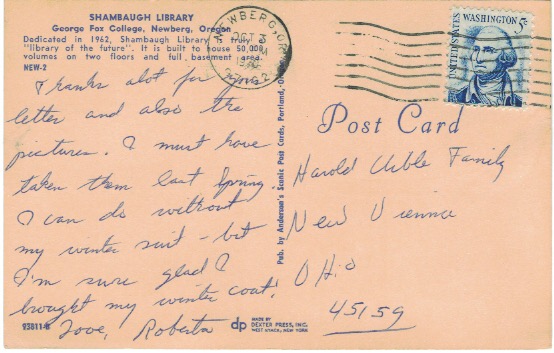 SHAMBAUGH LIBRARY
George Fox College, Newberg, Oregon
Dedicated in 1962, Shambaugh Library is truly a
"library of the future". It is built to house 50,000
volumes on two floors and full basement area.
NEW-2
NEWBERG, OR
OCT 3
PM
UNITED STATES
WASHINGTON 5c
Thanks alot for your
letter and also the
pictures. I must have
taken them last Spring
I can do without
my winter suit - but
I'm sure glad I
brought my winter coat!
Love, Roberta
93811-B
Pub. by Anderson's Scenic Post Cards, Portland, O
dp MADE BY
DEXTER PRESS, INC.
WEST NYACK, NEW YORK
Post Card
Harold Uible Family
New Vienna
Ohio
45159